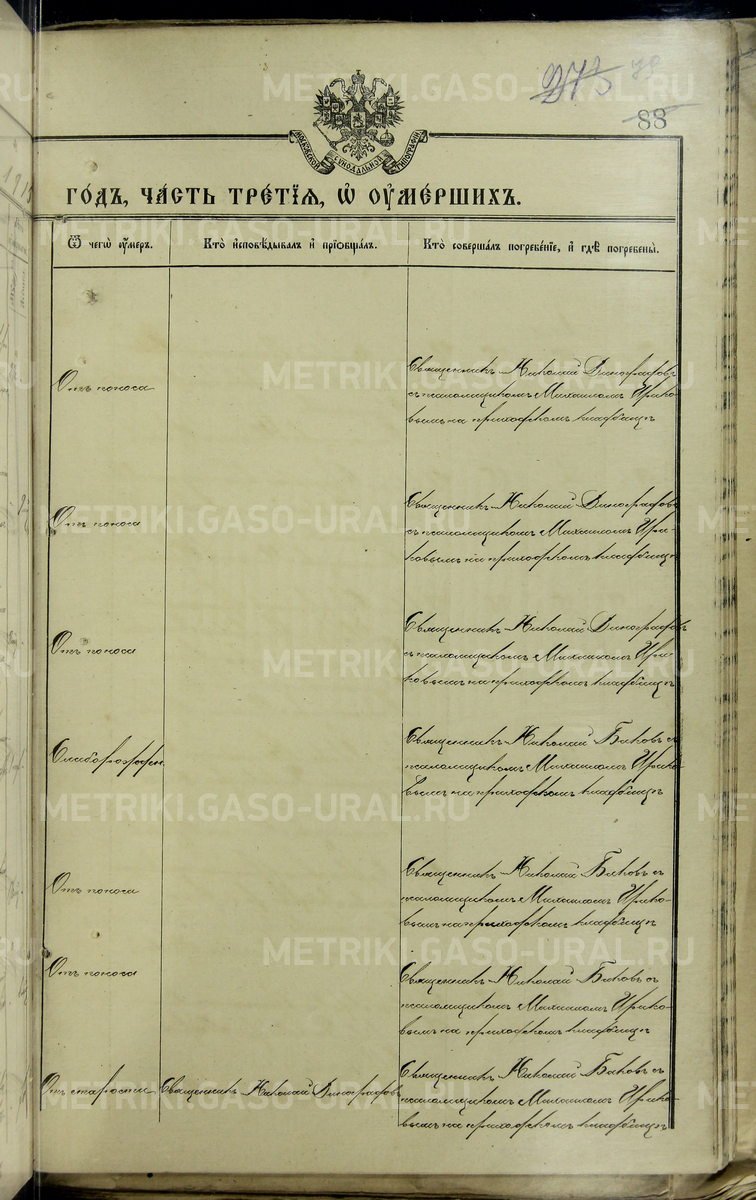 273 79
88
МОСКОВСКОЙ СѴНОДАЛЬНОЙ ТИПОГРАФІИ
ГО́ДЪ, ЧА́СТЬ ТРЕ́ТІЯ, Ѡ҆ ОУ҆МЕ́РШИХЪ.
Ѿ чегѡ̀ оу҆́меръ.
Кто̀ и҆сповѣ́дывалъ и҆ прїобща́лъ.
Кто̀ соверша́лъ погребе́нїе, и҆ гдѣ̀ погребены̀.
Отъ поноса
Священникъ Николай Виноградовъ
съ псаломщикомъ Михаиломъ
на приходскомъ кладбищѣ
Отъ поноса
Священникъ Николай Виноградовъ
съ псаломщикомъ Михаиломъ
на приходскомъ кладбищѣ
Отъ поноса
Священникъ Николай Виноградовъ
съ псаломщикомъ Михаиломъ
на приходскомъ кладбищѣ
Слаборожден.
Священникъ Николай Быковъ съ
псаломщикомъ Михаиломъ
на приходскомъ кладбищѣ
Отъ поноса
Священникъ Николай Быковъ съ
псаломщикомъ Михаиломъ
на приходскомъ кладбищѣ
Отъ поноса
Священникъ Николай Быковъ съ
псаломщикомъ Михаиломъ
на приходскомъ кладбищѣ
Отъ старости
Священникъ Николай Виноградовъ
Священникъ Николай Быковъ съ
псаломщикомъ Михаиломъ
на приходскомъ кладбищѣ
METRIKI.GASO-URAL.RU